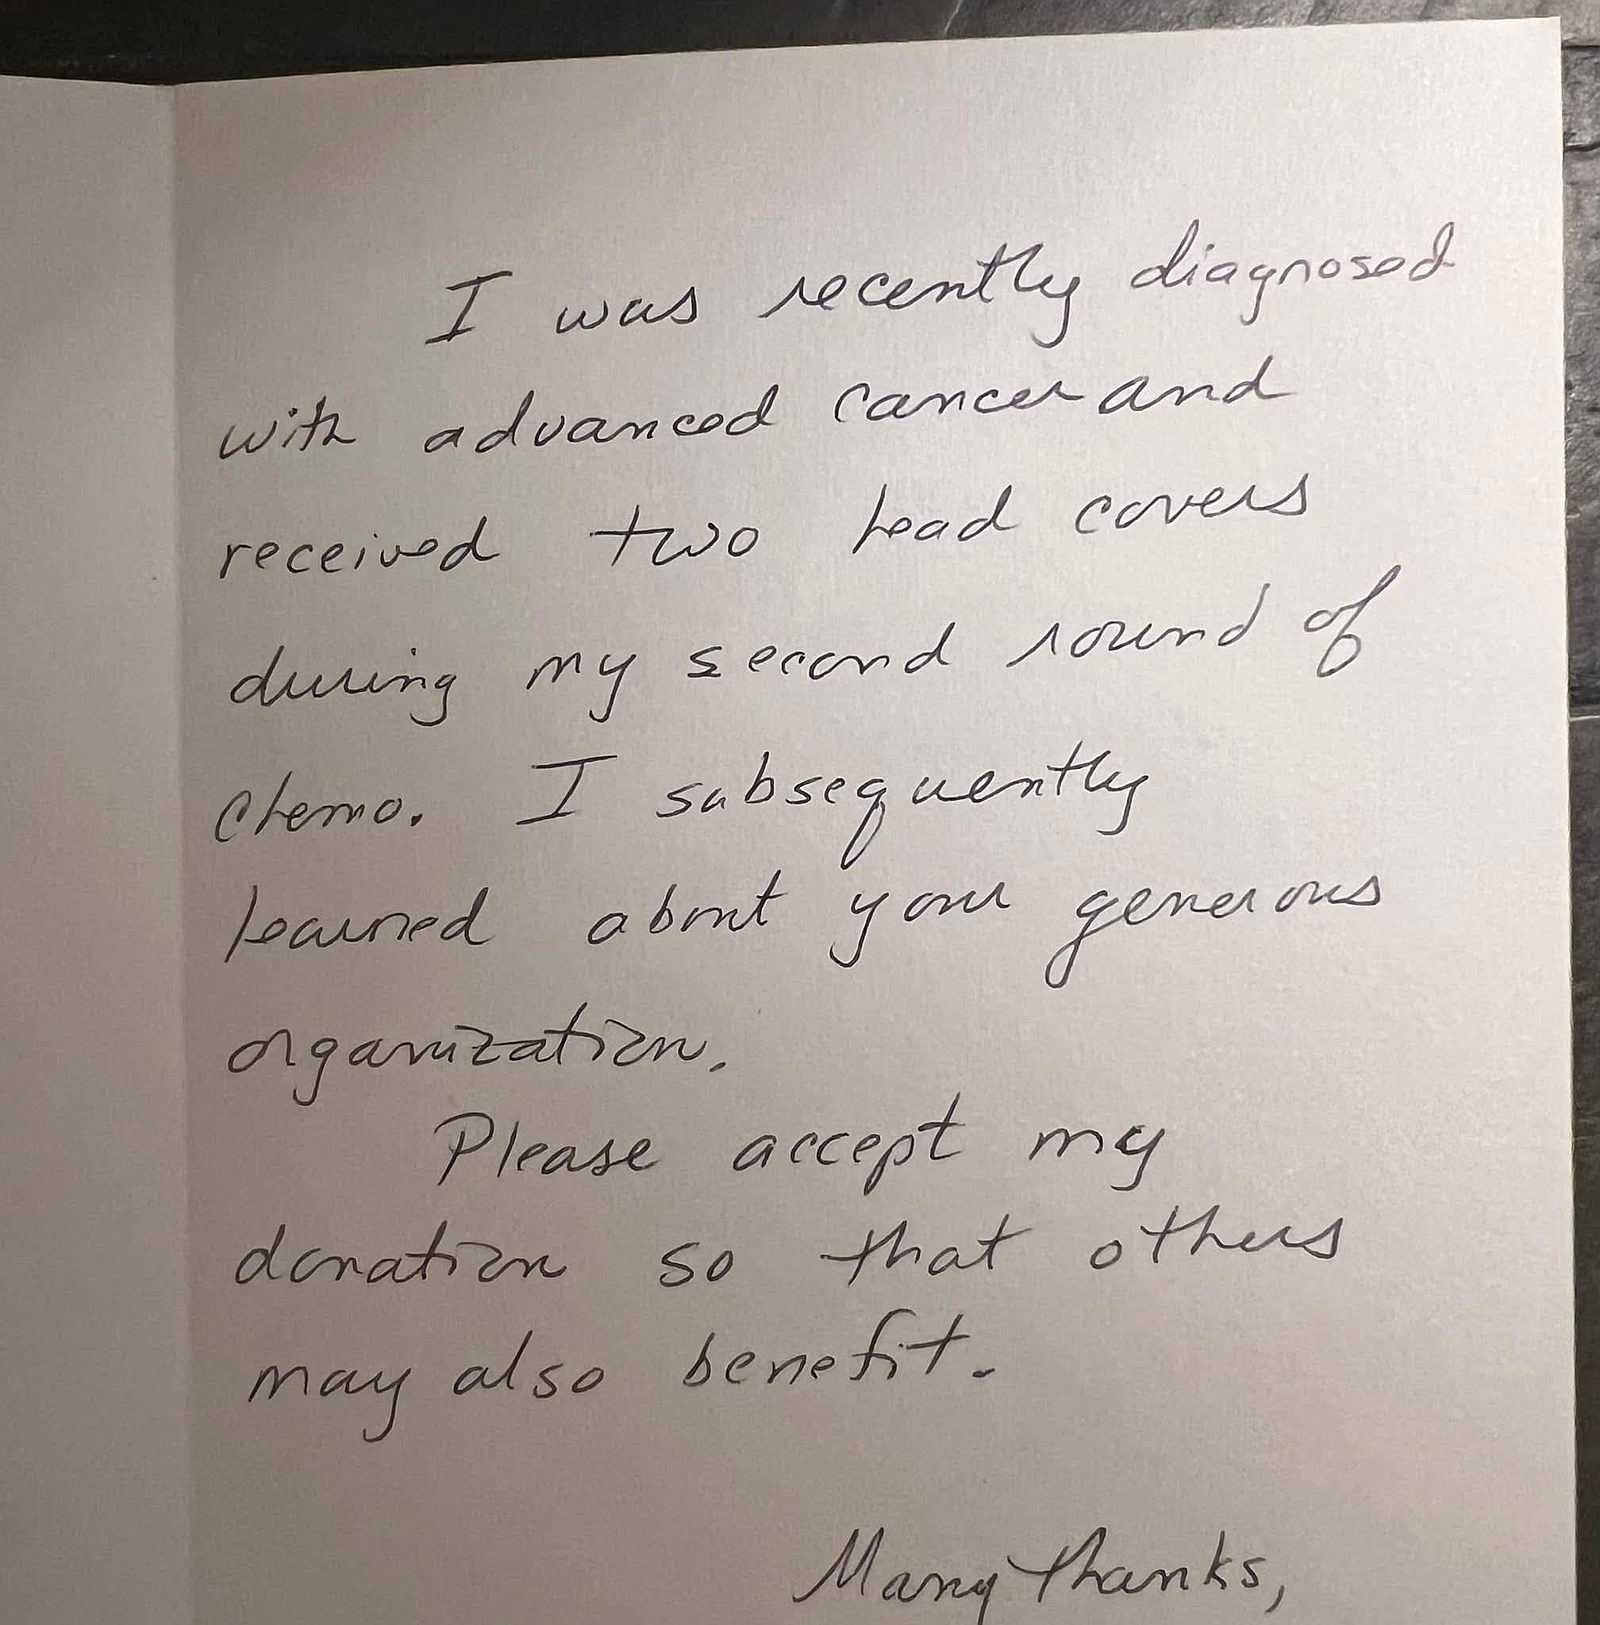 I was recently diagnosed
with advanced cancer and
received two head covers
during my second round of
chemo. I subsequently
learned about your generous
organization.
Please accept my
donation so that others
may also benefit.
Many thanks,